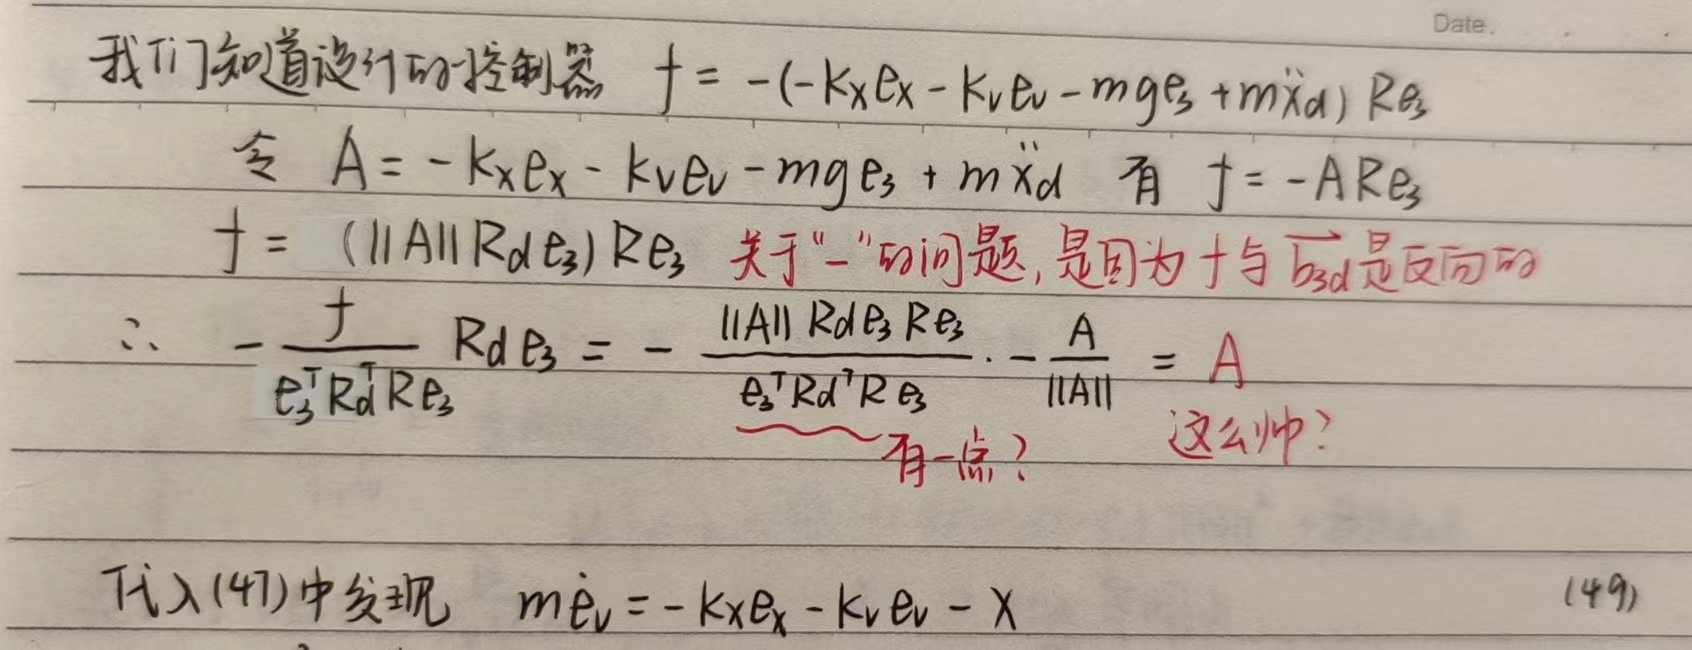 Date.
我们知道设计的控制器 f = -(-kxex - kvev - mge₃ + mẍd) Re₃
令 A = -kxex - kvev - mge₃ + mẍd 有 f = -ARe₃
f = (||A|| Rd e₃) Re₃ 关于"-"的问题,是因为f与b₃d是反向的
∴ - f / (e₃ᵀRdᵀRe₃) Rd e₃ = - (||A|| Rd e₃ Re₃) / (e₃ᵀRdᵀR e₃) · - A / ||A|| = A
有一点? 这么帅?
代入(47)中发现 mėv = -kxex - kvev - X (49)